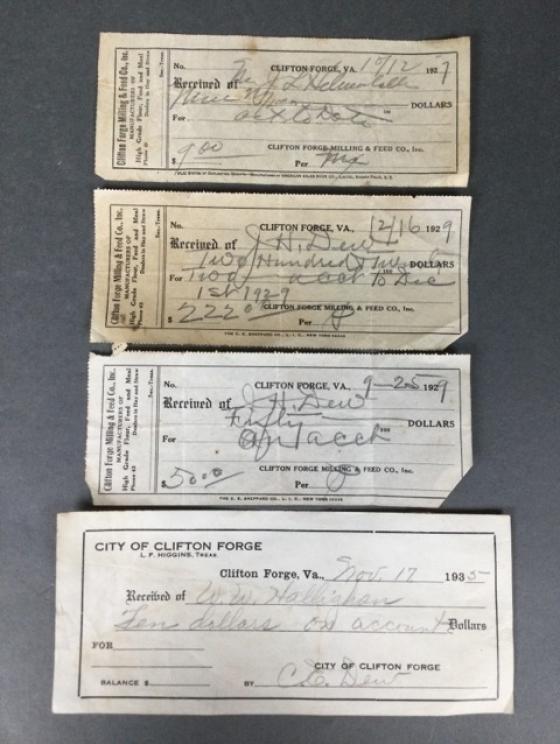 Clifton Forge Milling & Feed Co., Inc.
MANUFACTURERS OF
High Grade Flour, Feed and Meal
Dealers in Hay and Straw
Phone 63
Sec.-Treas.
No. CLIFTON FORGE, VA. 10/12 1927
Received of Mr J L
Nine DOLLARS
For acct to Date
CLIFTON FORGE MILLING & FEED CO., Inc.
$ 9.00 Per
Clifton Forge Milling & Feed Co., Inc.
MANUFACTURERS OF
High Grade Flour, Feed and Meal
Dealers in Hay and Straw
Phone 63
Sec.-Treas.
No. CLIFTON FORGE, VA., 12/16 1929
Received of J H. Dew
Two Hundred Twenty DOLLARS
For Two acct to Dec
1st 1929
CLIFTON FORGE MILLING & FEED CO., Inc.
$ 222.00 Per
THE C. E. SHEPPARD CO., L. I. C., NEW YORK
Clifton Forge Milling & Feed Co., Inc.
MANUFACTURERS OF
High Grade Flour, Feed and Meal
Dealers in Hay and Straw
Phone 63
Sec.-Treas.
No. CLIFTON FORGE, VA., 9-25 1929
Received of J. H. Dew
Fifty DOLLARS
For on acct
CLIFTON FORGE MILLING & FEED CO., Inc.
$ 50.00 Per
THE C. E. SHEPPARD CO., L. I. C., NEW YORK
CITY OF CLIFTON FORGE
L. F. HIGGINS, TREAS.
Clifton Forge, Va., Nov. 17 1935
Received of W. W. Hallighan
Ten dollars on account Dollars
FOR
CITY OF CLIFTON FORGE
BALANCE $ BY C. E. Dew